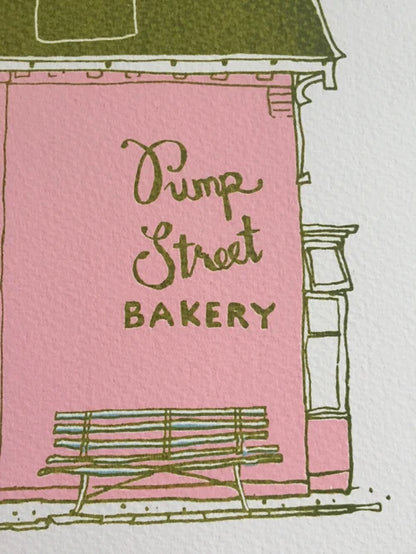 Pump
Street
BAKERY